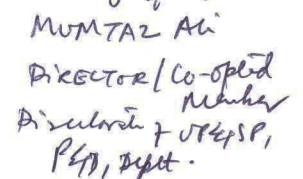 MUMTAZ Ali
DIRECTOR/Co-opted
Member
Directorate of UPE&SP,
P&D, Deptt.